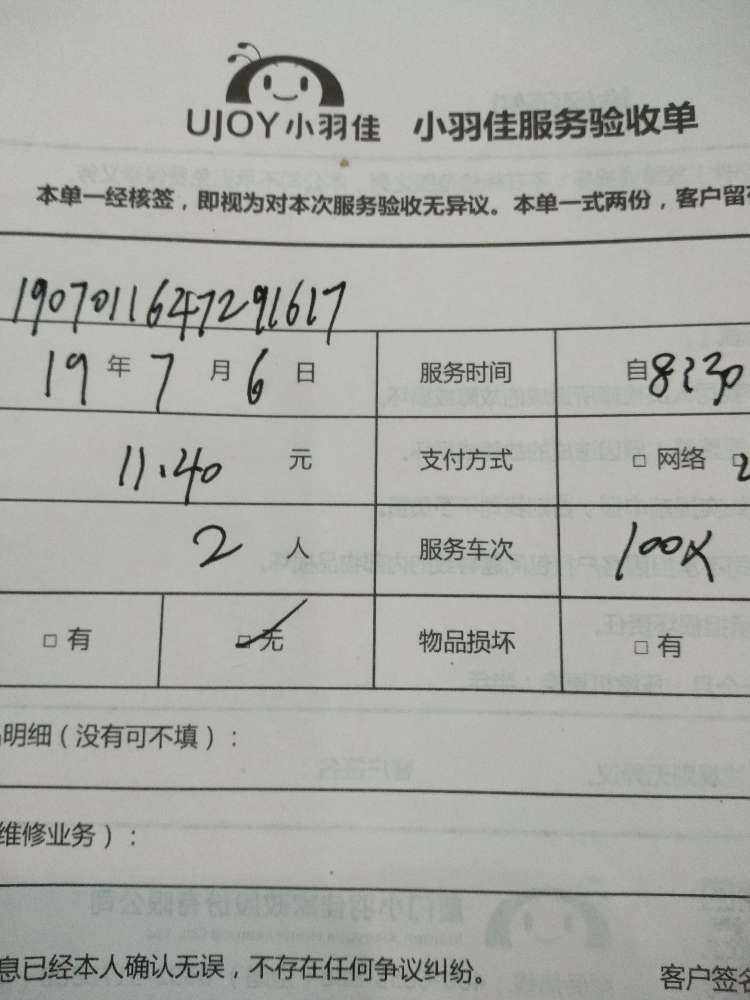 UJOY小羽佳 小羽佳服务验收单
本单一经核签，即视为对本次服务验收无异议。本单一式两份，客户留
1907011647291617
19年7月6日 服务时间 自8:30
11.40元 支付方式 □网络 □
2人 服务车次 100X
□有 □无 物品损坏 □有
明细（没有可不填）：
维修业务）：
息已经本人确认无误，不存在任何争议纠纷。 客户签名